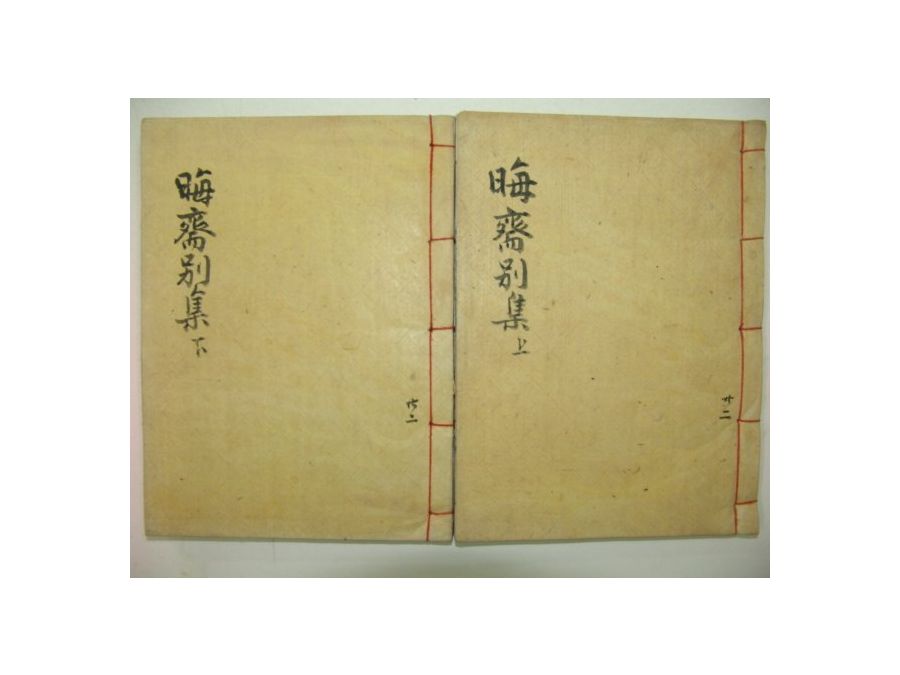 晦齋別集
上
共二
晦齋別集
下
共二